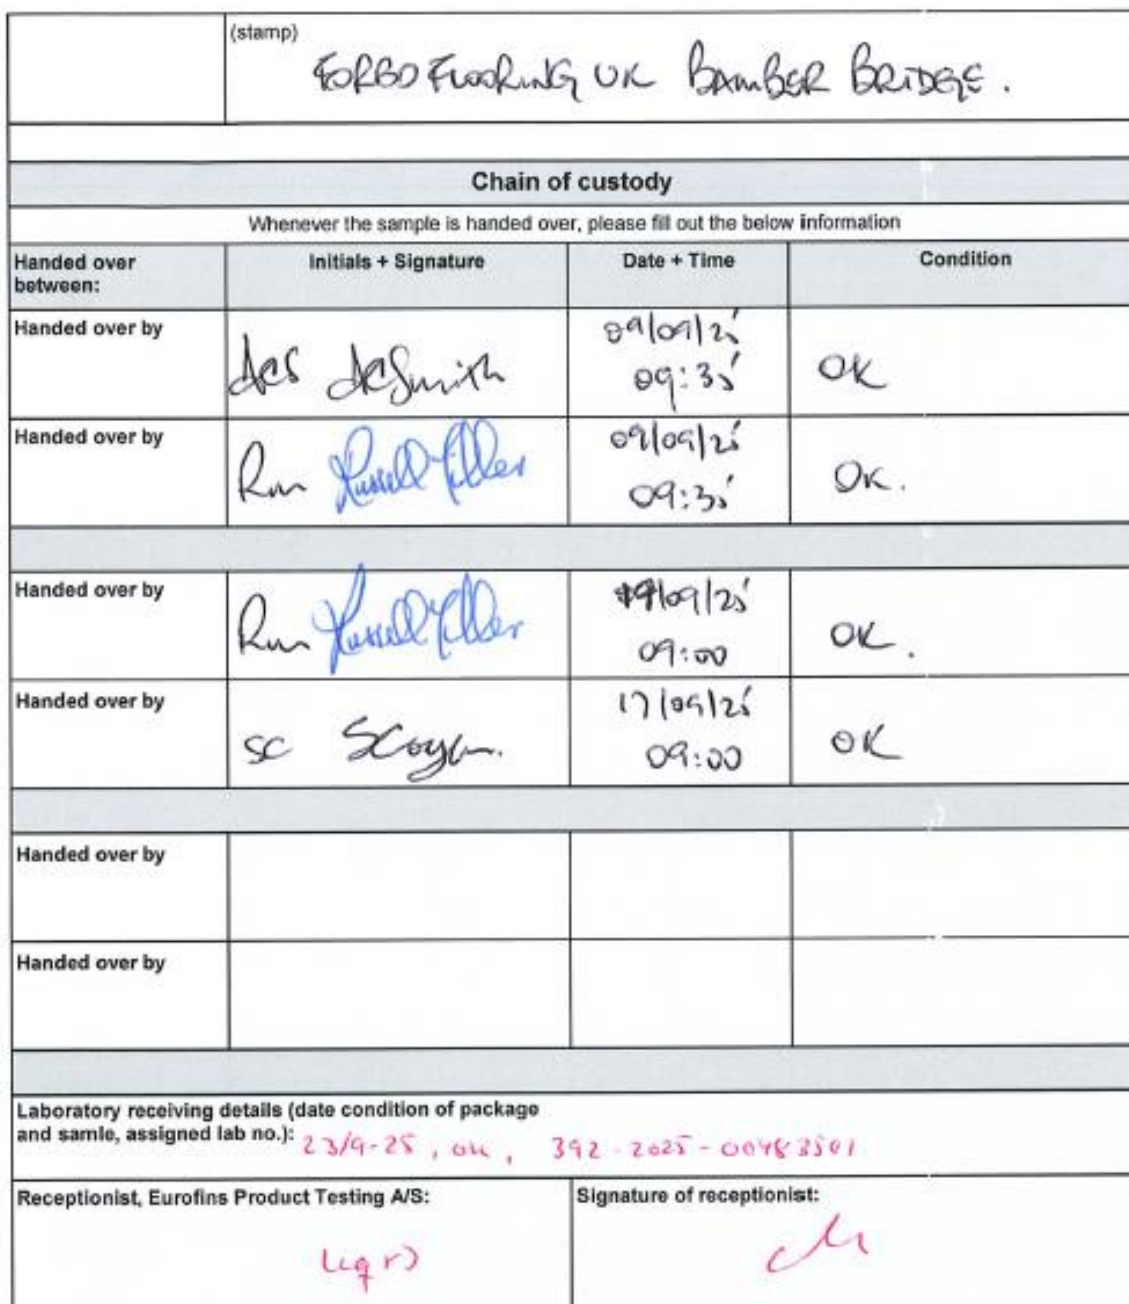 (stamp)
FORBO FLOORING UK BAMBER BRIDGE.
Chain of custody
Whenever the sample is handed over, please fill out the below information
Handed over between: Initials + Signature Date + Time Condition
Handed over by ACS ACSmith 09/09/25 09:35 OK
Handed over by RM Russell Miller 09/09/25 09:35 OK.
Handed over by RM Russell Miller 17/09/25 09:00 OK.
Handed over by SC 17/09/25 09:00 OK
Handed over by
Handed over by
Laboratory receiving details (date condition of package
and samle, assigned lab no.): 23/9-25, OK, 392-2025-00483501
Receptionist, Eurofins Product Testing A/S: Signature of receptionist: